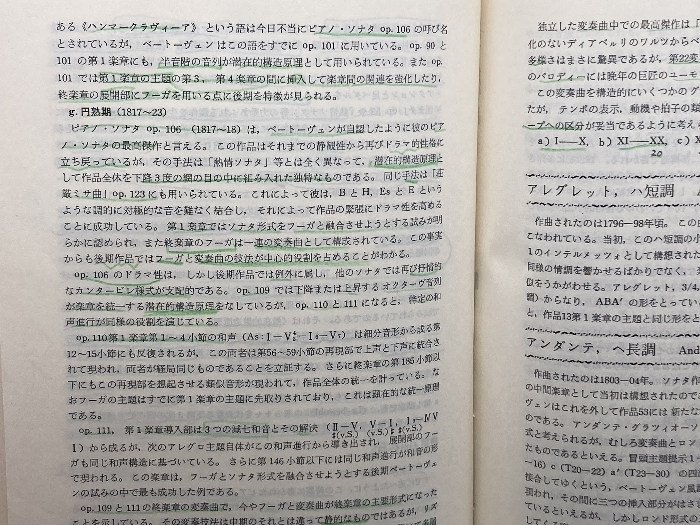 ある《ハンマークラヴィーア》という語は今日不当にピアノ・ソナタ op. 106 の呼び名
とされているが，ベートーヴェンはこの語をすでに op. 101 に用いている。op. 90 と
101 の第1楽章にも，半音階の音列が潜在的構造原理として用いられている。また op.
101 では第1楽章の主題の第3，第4楽章の間に挿入して楽章間の関連を強化したり，
終楽章の展開部にフーガを用いる点に後期の特徴が見られる。
g. 円熟期（1817〜23）
ピアノ・ソナタ op. 106（1817〜18）は，ベートーヴェンが自認したように彼のピア
ノ・ソナタの最高傑作と言える。この作品はそれまでの静観性から再びドラマ的性格に
立ち戻っているが，その手法は「熱情ソナタ」等とは全く異なって，潜在的構造原理と
して作品全体を下降3度の網の目の中に組み入れた独特なものである。同じ手法は「荘
厳ミサ曲」op. 123 にも用いられている。これによって彼は，B と H，Es と E という
ような調的に対極的な音を難なく結合し，それによって作品の緊張にドラマ性を高める
ことに成功している。第1楽章ではソナタ形式をフーガと融合させようとする試みが明
らかに認められ，また終楽章のフーガは一連の変奏曲として構成されている。この事実
からも後期作品ではフーガと変奏曲の技法が中心的役割を占めることがわかる。
op. 106 のドラマ性は，しかし後期作品では例外に属し，他のソナタでは再び抒情的
なカンタービレ様式が支配的である。op. 109 では下降または上昇するオクターヴ音列
が楽章を統一する潜在的構造原理をなしているが，op. 110 と 111 になると，特定の和
声進行が同様の役割を演じている。
op. 110 第1楽章第1〜4小節の和声
は細分音形から成る第
12〜15小節にも反復されるが，この両者は第56〜59小節の再現部で上声と下声に統合さ
れて現われ，両者が経同じものであることを立証する。さらに終楽章の第185小節以
下にもこの再現部を想起させる類似音形が現われて，作品全体の統一を計っている。な
おフーガの主題はすでに第1楽章の主題に先取りされており，これは潜在的な統一原理
である。
op. 111，第1楽章導入部は3つの減七和音とその解決
1）から成るが，次のアレグロ主題自体がこの和声進行から導き出され，展開部のフー
ガも同じ和声構造に基づいている。さらに第146小節以下には同じ和声進行が和音の形
で現われる。この楽章は，フーガとソナタ形式を融合させようとする後期ベートーヴェ
ンの試みの中で最も成功した例である。
op. 109 と 111 の終楽章の変奏曲で，今やフーガと変奏曲が終楽章の主要形式になった
ことを示している。その変奏技法は中期のそれとは違って静的なものではあるが，
独立した変奏曲中での最高傑作は「
化のないディアベルリのワルツからベ
多様さはまさに驚異であるが，第22変
のパロディーには晩年の巨匠のユーモ
この変奏曲を構造的にいくつかのグ
たが，テンポの表示，動機や拍子の類
ープへの区分が妥当であるように考え
a) I—X, b) XI—XX, c) X
20
アレグレット，ハ短調
作曲されたのは1796—98年頃。この曲
こなわれている。当初，このハ短調の小
1のインテルメッツォとして構想された
同様の情調を響かせるばかりでなく，
似をうかがわせる。アレグレット，3/4，
題）からなり，ABA′の形をとってい
と，作品13第1楽章の主題と同じ形をと
アンダンテ，ヘ長調 And
作曲されたのは1803—04年。ソナタ作
の中間楽章として当初は構想されたのであ
ヴェンはこれを外して作品53には新たな
のである。アンダンテ・グラツィオーソ
式と考えられるが，むしろ変奏曲とロン
たものであるといえる。冒頭主題提示1—
—16) c (T20—22) a′ (T23—30) の四
接合してゆくという，ベートーヴェン風
現われ，その間に三つの挿入部分がは
ているといえるが，しかしロンド形式